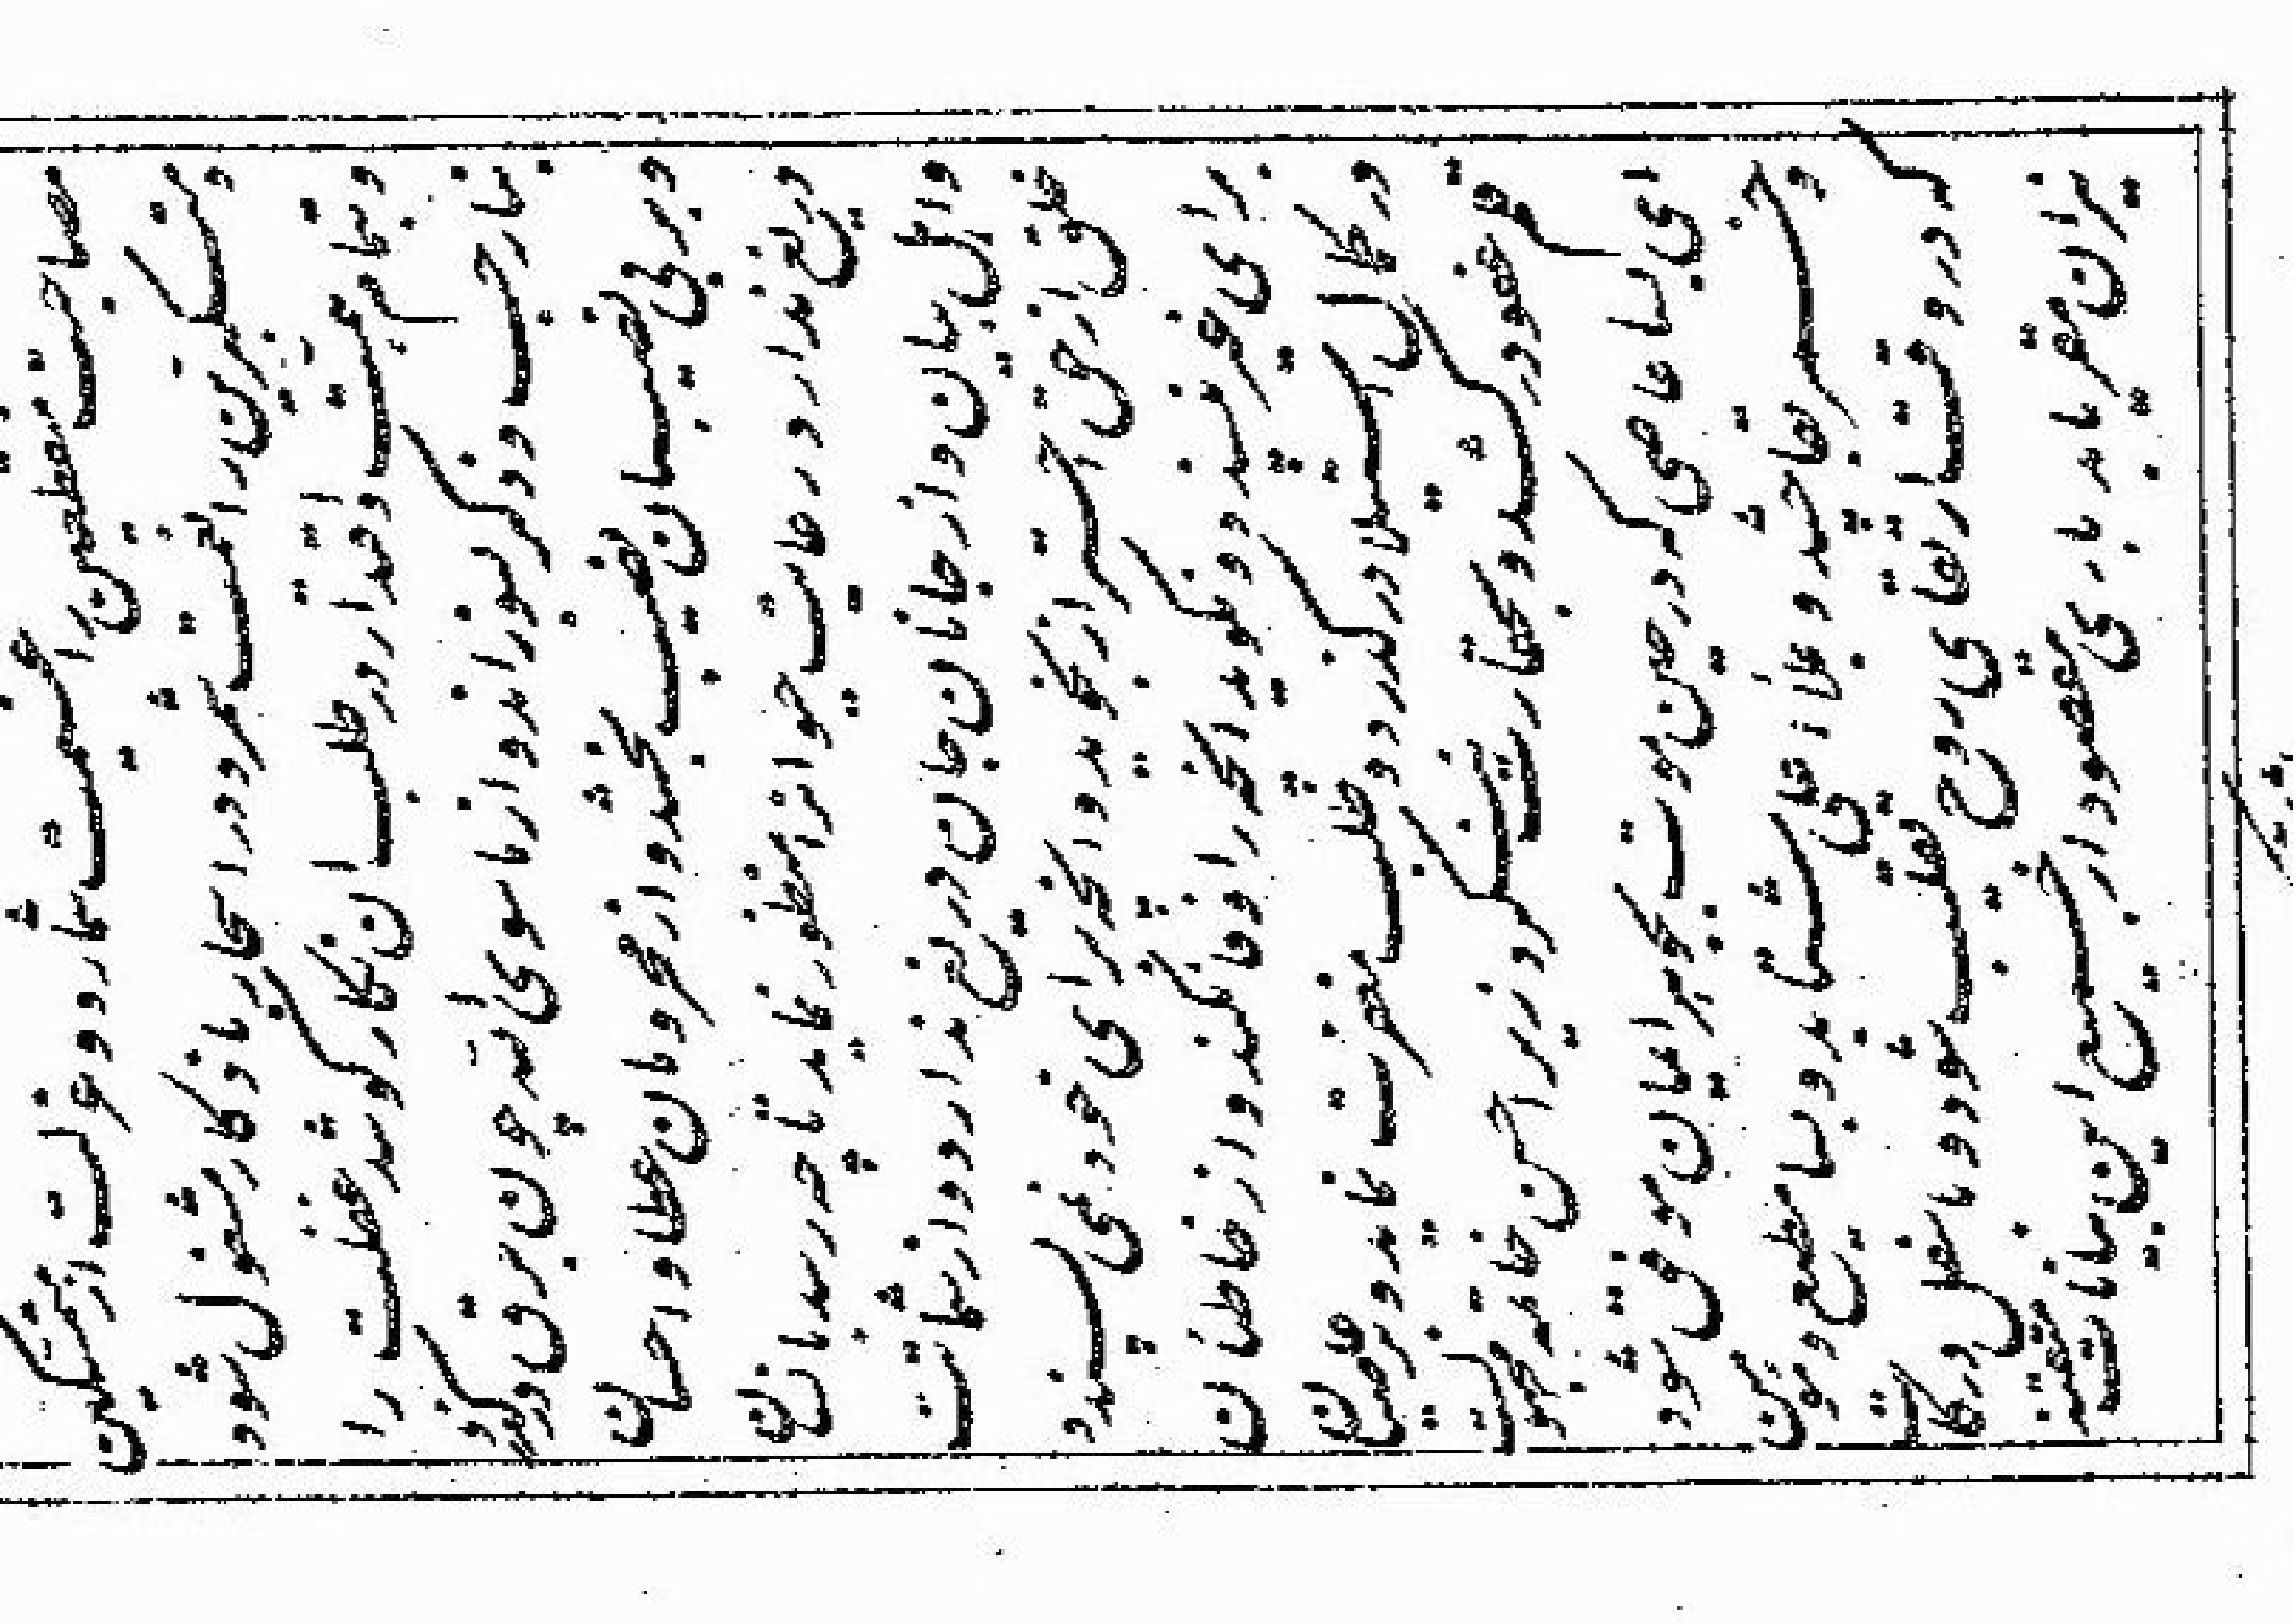 مصاحبت منقطعین را غنیمت شمارد و عزلت از متمسکین
و متکبرین را نعمت شمرد در اسحار باذکار مشغول شود
و بتمام همت و اقتدار در طلب ان نگار کوشد غفلت را
بنار حب و ذکر بسوزاند و از ما سوی الله چون برق درگذرد
و بر بی نصیبان نصیب بخشد و از محرومان عطا و احسان
دریغ ندارد و رعایت حیوانرا منظور نماید تا چه رسد بانسان
و اهل بیان و از جانان جان دریغ ندارد و از شماتت
خلق از حق احتراز نجوید و انچه برای خود نمی پسندد
برای غیر نپسندد و نگوید انچه را وفا نکند و از خاطئان
در کمال استیلا درگذرد و طلب مغفرت نماید و بر عاصیان
قلم عفو درکشد و بحقارت ننگرد زیرا حسن خاتمه مجهولست
ای بسا عاصی که در حین موت بجوهر ایمان موفق شود
و خمر بقا چشد و بملأ شتابد و بسا مطیع و مومن
که در وقت ارتقای روح تقلیب شود و باسفل درکات
نیران مقر یابد باری مقصود از جمیع این بیانات متقنه